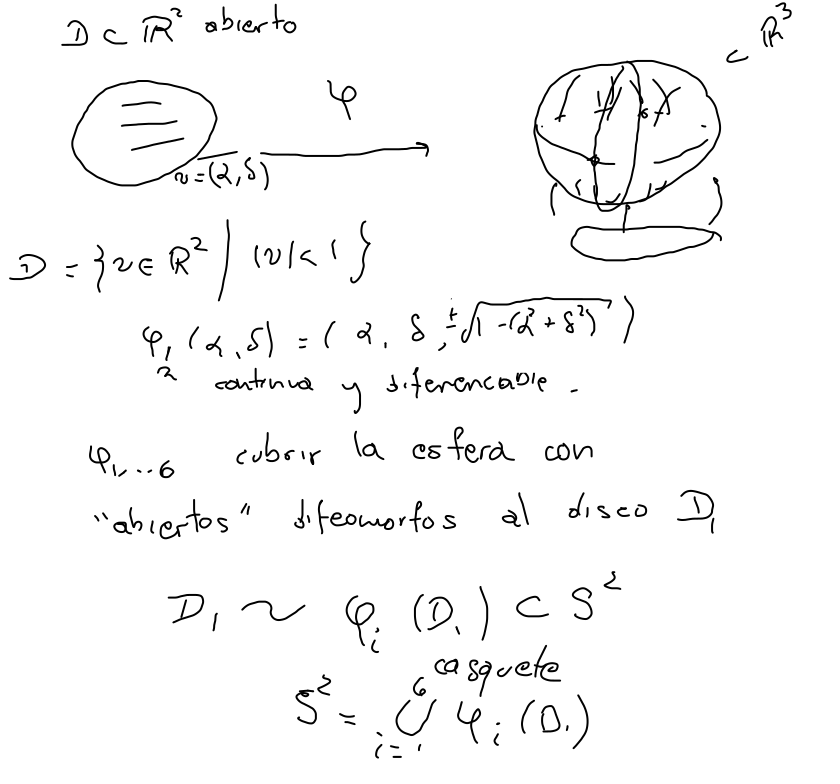 D ⊂ ℝ² abierto
⊂ ℝ³
φ
v=(α,δ)
D = {v ∈ ℝ² | |v| < 1}
φ₁,₂ (α,δ) = (α, δ, ±√(1-(α²+δ²)))
continua y diferenciable.
φ₁,...₆ cubrir la esfera con
"abiertos" difeomorfos al disco D₁
D₁ ~ φᵢ (D₁) ⊂ S²
casquete
S² = ⋃ᵢ₌₁⁶ φᵢ (D₁)